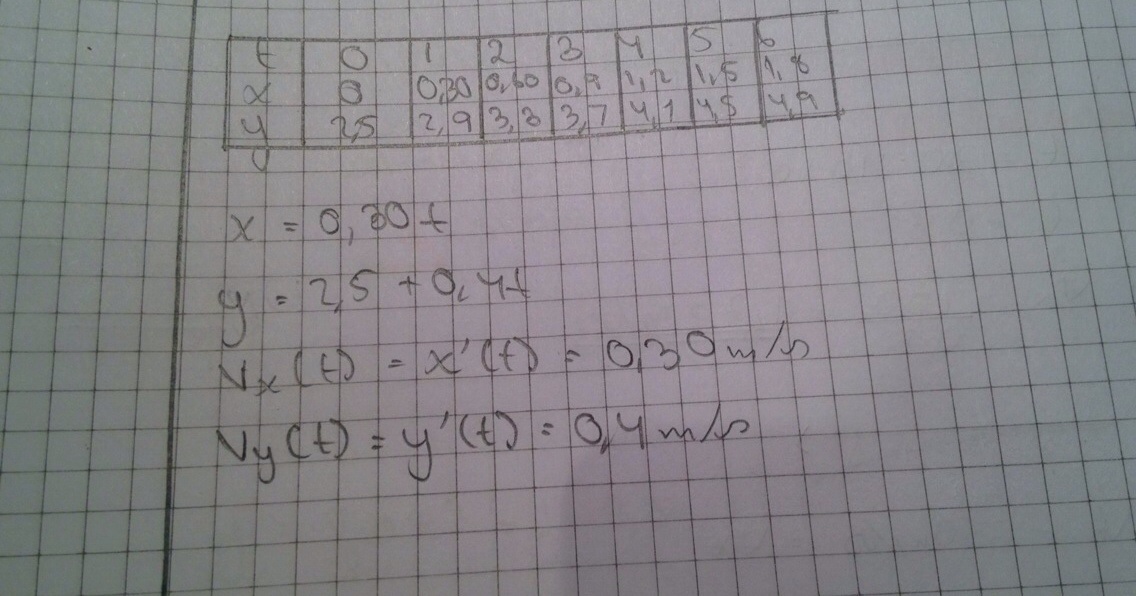 t 0 1 2 3 4 5 6
x 0 0,30 0,60 0,9 1,2 1,5 1,8
y 2,5 2,9 3,3 3,7 4,1 4,5 4,9
x = 0,30t
y = 2,5 + 0,4t
Vx(t) = x'(t) = 0,30 m/s
Vy(t) = y'(t) = 0,4 m/s